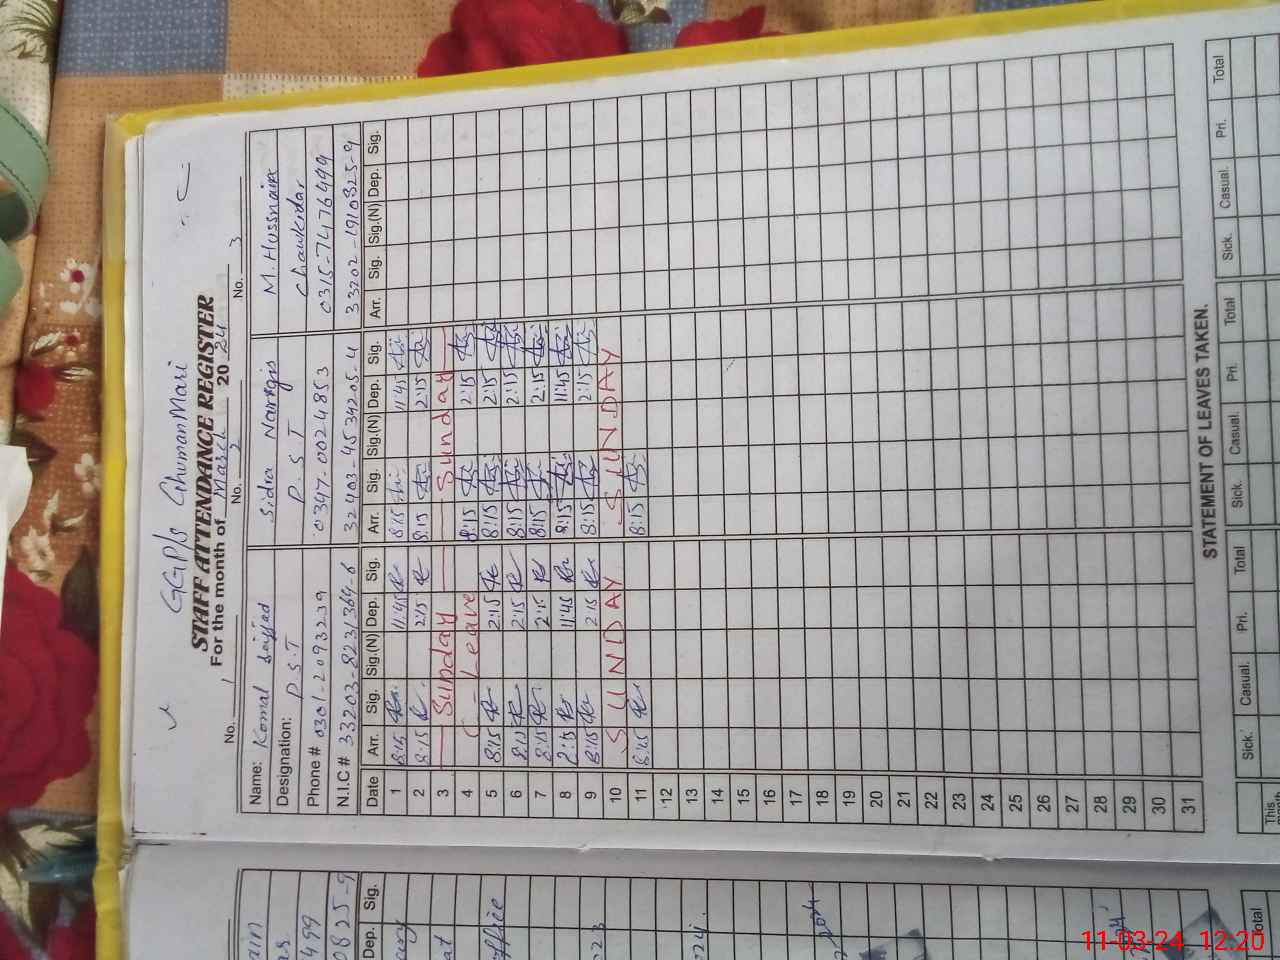 GGP/s GhumanMari
STAFF ATTENDANCE REGISTER
For the month of March 2024
No. 1 No. 2 No. 3
Name: Komal Sajjad Sidra Nargis M. Hussnain
Designation: P.S.T P.S.T Chawkidar
Phone # 0301-2093239 0347-0024853 0315-7476499
N.I.C # 33203-8231364-6 32403-4539205-4 33202-1910825-9
Date Arr. Sig. Sig.(N) Dep. Sig. Arr. Sig. Sig.(N) Dep. Sig. Arr. Sig. Sig.(N) Dep. Sig.
1 8:15 11:45 8:15 11:45
2 8:15 2:15 8:15 2:15
3 Sunday Sunday
4 C - Leave 8:15 2:15
5 8:15 2:15 8:15 2:15
6 8:15 2:15 8:15 2:15
7 8:15 2:15 8:15 2:15
8 8:15 11:45 8:15 11:45
9 8:15 2:15 8:15 2:15
10 SUNDAY SUNDAY
11 8:15 8:15
12
13
14
15
16
17
18
19
20
21
22
23
24
25
26
27
28
29
30
31
STATEMENT OF LEAVES TAKEN.
Sick. Casual. Pri. Total Sick. Casual. Pri. Total Sick. Casual. Pri. Total
This
month
Dep. Sig.
office
Total
11-03-24 12:20